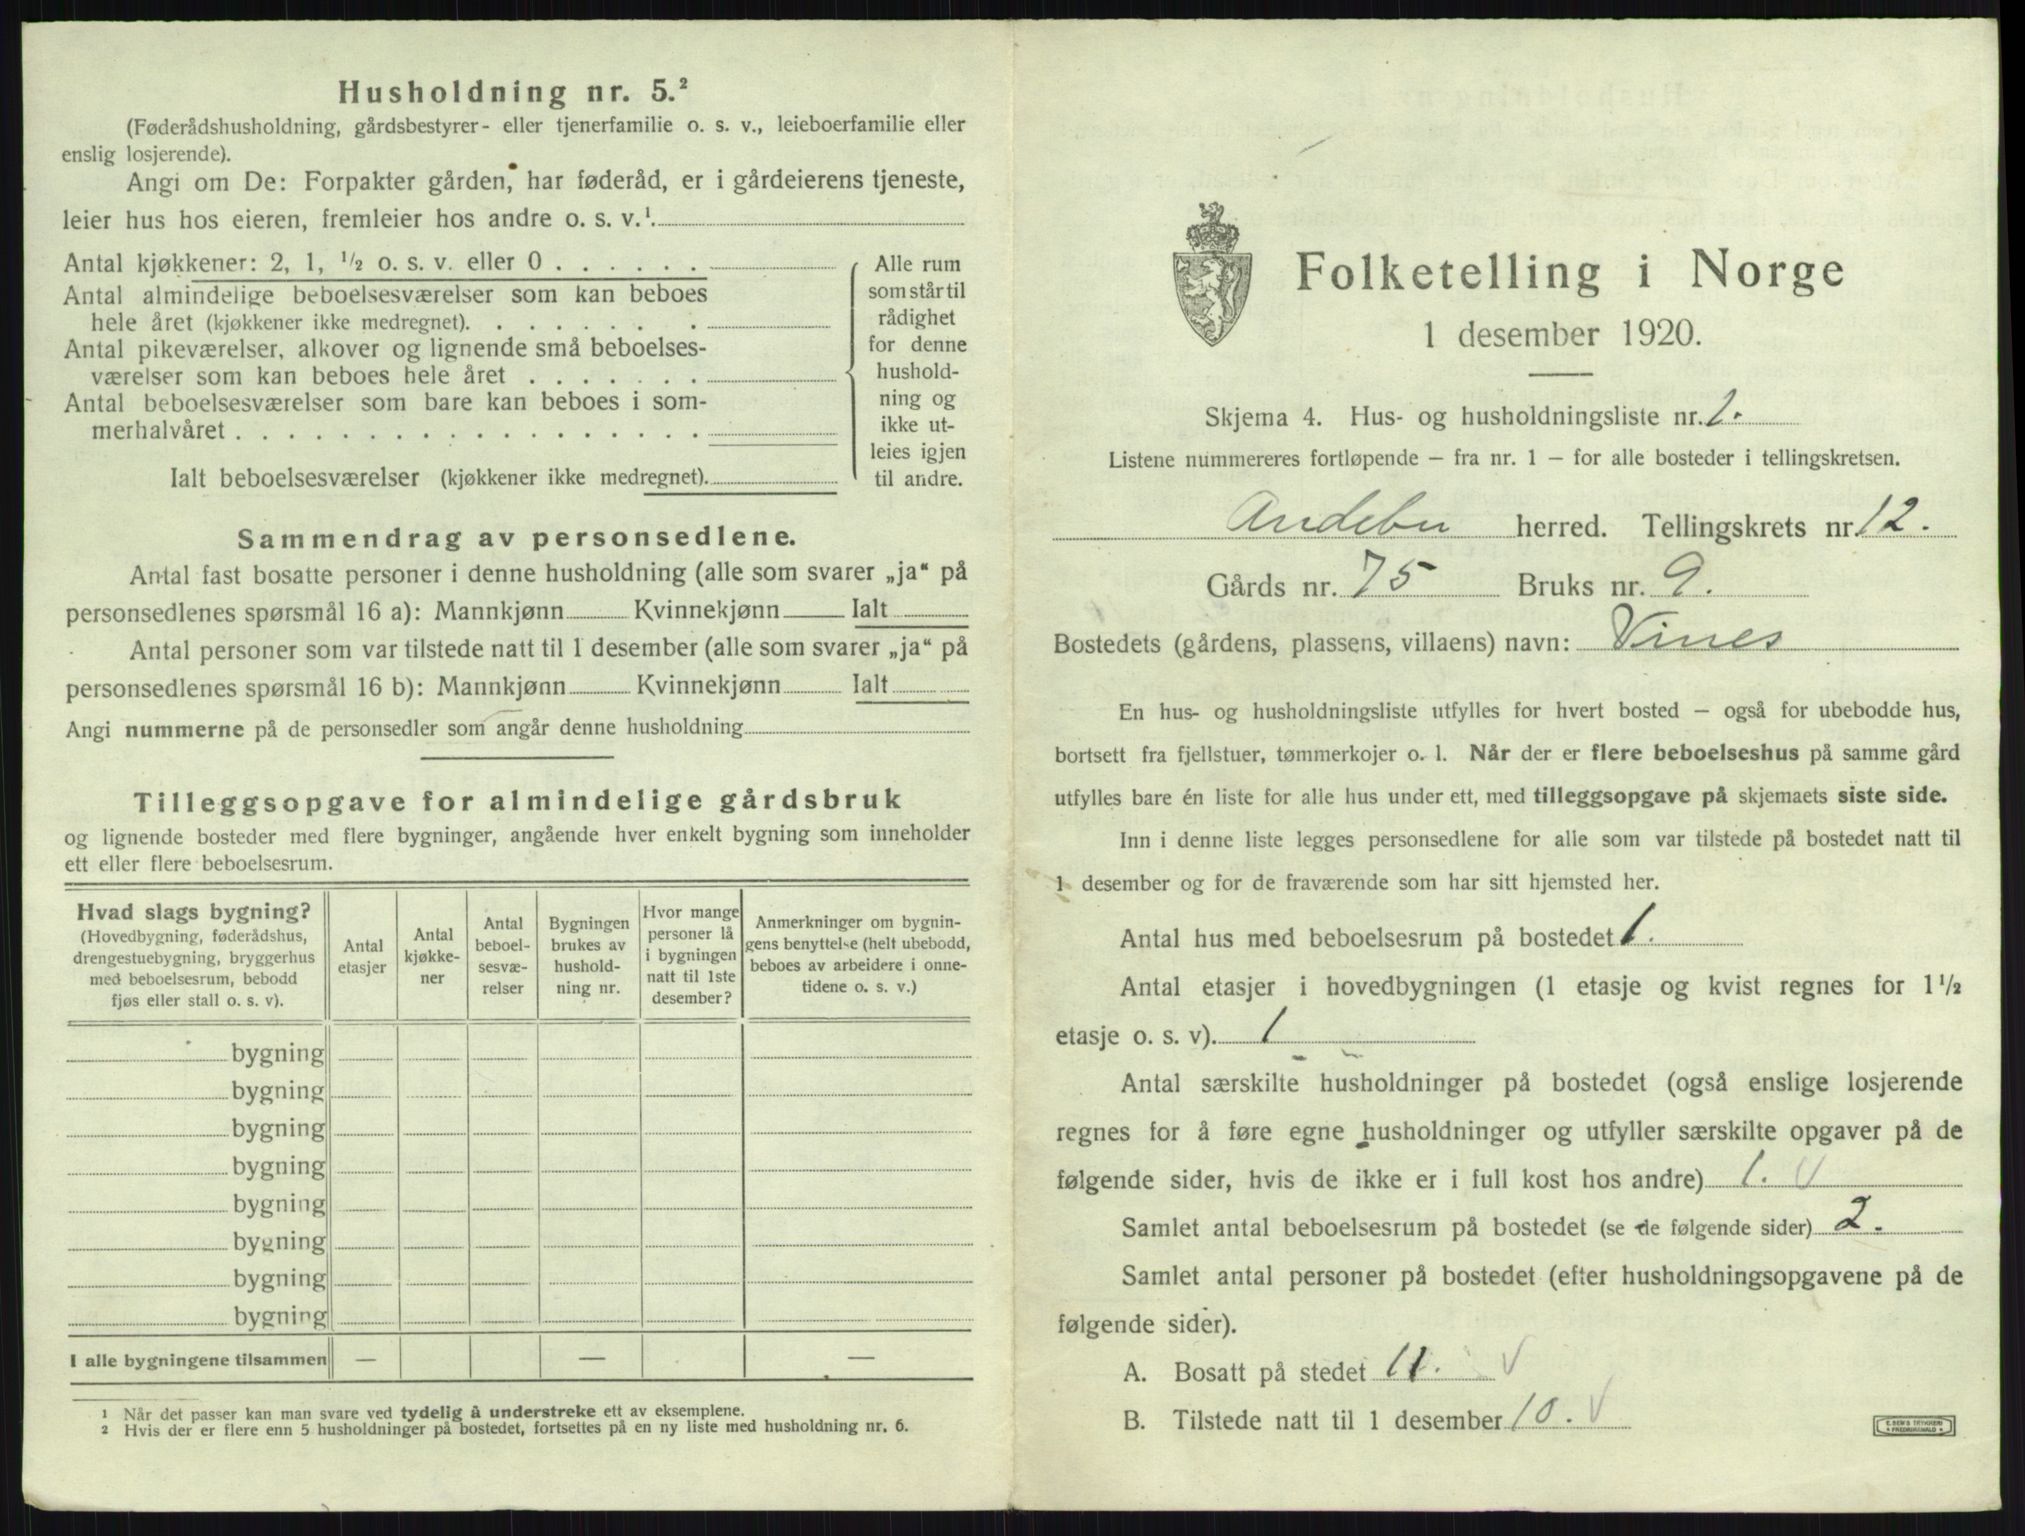 Husholdning nr. 5.²
(Føderådshusholdning, gårdsbestyrer- eller tjenerfamilie o. s. v., leieboerfamilie eller
enslig losjerende).
Angi om De: Forpakter gården, har føderåd, er i gårdeierens tjeneste,
leier hus hos eieren, fremleier hos andre o. s. v.¹.
Antal kjøkkener: 2, 1, ½ o. s. v. eller 0 . . . . . .
Antal almindelige beboelsesværelser som kan beboes
hele året (kjøkkener ikke medregnet). . . . . . . .
Antal pikeværelser, alkover og lignende små beboelses-
værelser som kan beboes hele året . . . . . . .
Antal beboelsesværelser som bare kan beboes i som-
merhalvåret . . . . . . . . . . . . . . . . . .
Ialt beboelsesværelser (kjøkkener ikke medregnet).
Alle rum
som står til
rådighet
for denne
hushold-
ning og
ikke ut-
leies igjen
til andre.
Sammendrag av personsedlene.
Antal fast bosatte personer i denne husholdning (alle som svarer „ja“ på
personsedlenes spørsmål 16 a): Mannkjønn Kvinnekjønn Ialt
Antal personer som var tilstede natt til 1 desember (alle som svarer „ja“ på
personsedlenes spørsmål 16 b): Mannkjønn Kvinnekjønn Ialt
Angi nummerne på de personsedler som angår denne husholdning
Tilleggsopgave for almindelige gårdsbruk
og lignende bosteder med flere bygninger, angående hver enkelt bygning som inneholder
ett eller flere beboelsesrum.
Hvad slags bygning?
(Hovedbygning, føderådshus,
drengestuebygning, bryggerhus
med beboelsesrum, bebodd
fjøs eller stall o. s. v).
Antal
etasjer
Antal
kjøkke-
ner
Antal
beboel-
sesvæ-
relser
Bygningen
brukes av
hushold-
ning nr.
Hvor mange
personer lå
i bygningen
natt til 1ste
desember?
Anmerkninger om bygnin-
gens benyttelse (helt ubebodd,
beboes av arbeidere i onne-
tidene o. s. v.)
bygning
bygning
bygning
bygning
bygning
bygning
bygning
bygning
I alle bygningene tilsammen — — —
¹ Når det passer kan man svare ved tydelig å understreke ett av eksemplene.
² Hvis der er flere enn 5 husholdninger på bostedet, fortsettes på en ny liste med husholdning nr. 6.
Folketelling i Norge
1 desember 1920.
Skjema 4. Hus- og husholdningsliste nr. 1.
Listene nummereres fortløpende — fra nr. 1 — for alle bosteder i tellingskretsen.
Andebu herred. Tellingskrets nr. 12.
Gårds nr. 75 Bruks nr. 9.
Bostedets (gårdens, plassens, villaens) navn: Vines
En hus- og husholdningsliste utfylles for hvert bosted — også for ubebodde hus,
bortsett fra fjellstuer, tømmerkojer o. l. Når der er flere beboelseshus på samme gård
utfylles bare én liste for alle hus under ett, med tilleggsopgave på skjemaets siste side.
Inn i denne liste legges personsedlene for alle som var tilstede på bostedet natt til
1 desember og for de fraværende som har sitt hjemsted her.
Antal hus med beboelsesrum på bostedet 1.
Antal etasjer i hovedbygningen (1 etasje og kvist regnes for 1½
etasje o. s. v). 1
Antal særskilte husholdninger på bostedet (også enslige losjerende
regnes for å føre egne husholdninger og utfyller særskilte opgaver på de
følgende sider, hvis de ikke er i full kost hos andre) 1. V
Samlet antal beboelsesrum på bostedet (se de følgende sider) 2.
Samlet antal personer på bostedet (efter husholdningsopgavene på de
følgende sider).
A. Bosatt på stedet 11. V
B. Tilstede natt til 1 desember 10. V